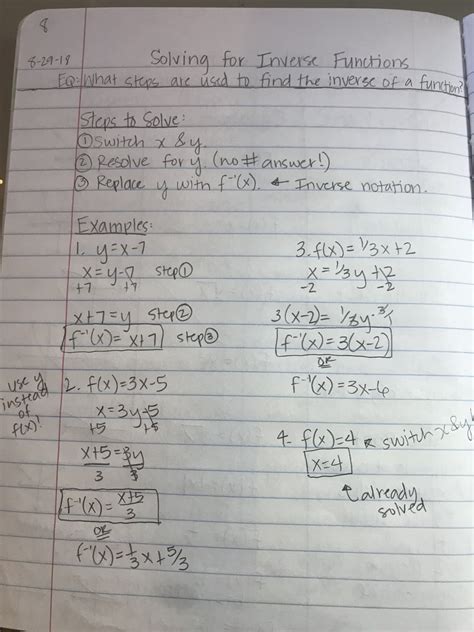 8
8-29-18
Solving for Inverse Functions
EQ: What steps are used to find the inverse of a function?
Steps to Solve:
① Switch x & y.
② Resolve for y. (no # answer!)
③ Replace y with f⁻¹(x). ← Inverse notation.
Examples:
1. y=x-7
x=y-7 step①
+7 +7
x+7=y step②
f⁻¹(x)=x+7 step③
use y
instead
of
f(x)!
2. f(x)=3x-5
x=3y-5
+5 +5
x+5=3y
3 3
f⁻¹(x)=x+5/3
OR
f⁻¹(x)=1/3x+5/3
3. f(x)=1/3x+2
x=1/3y+2
-2 -2
3(x-2)=1/3y·3/1
f⁻¹(x)=3(x-2)
OR
f⁻¹(x)=3x-6
4. f(x)=4 switch x & y!
x=4
already
solved